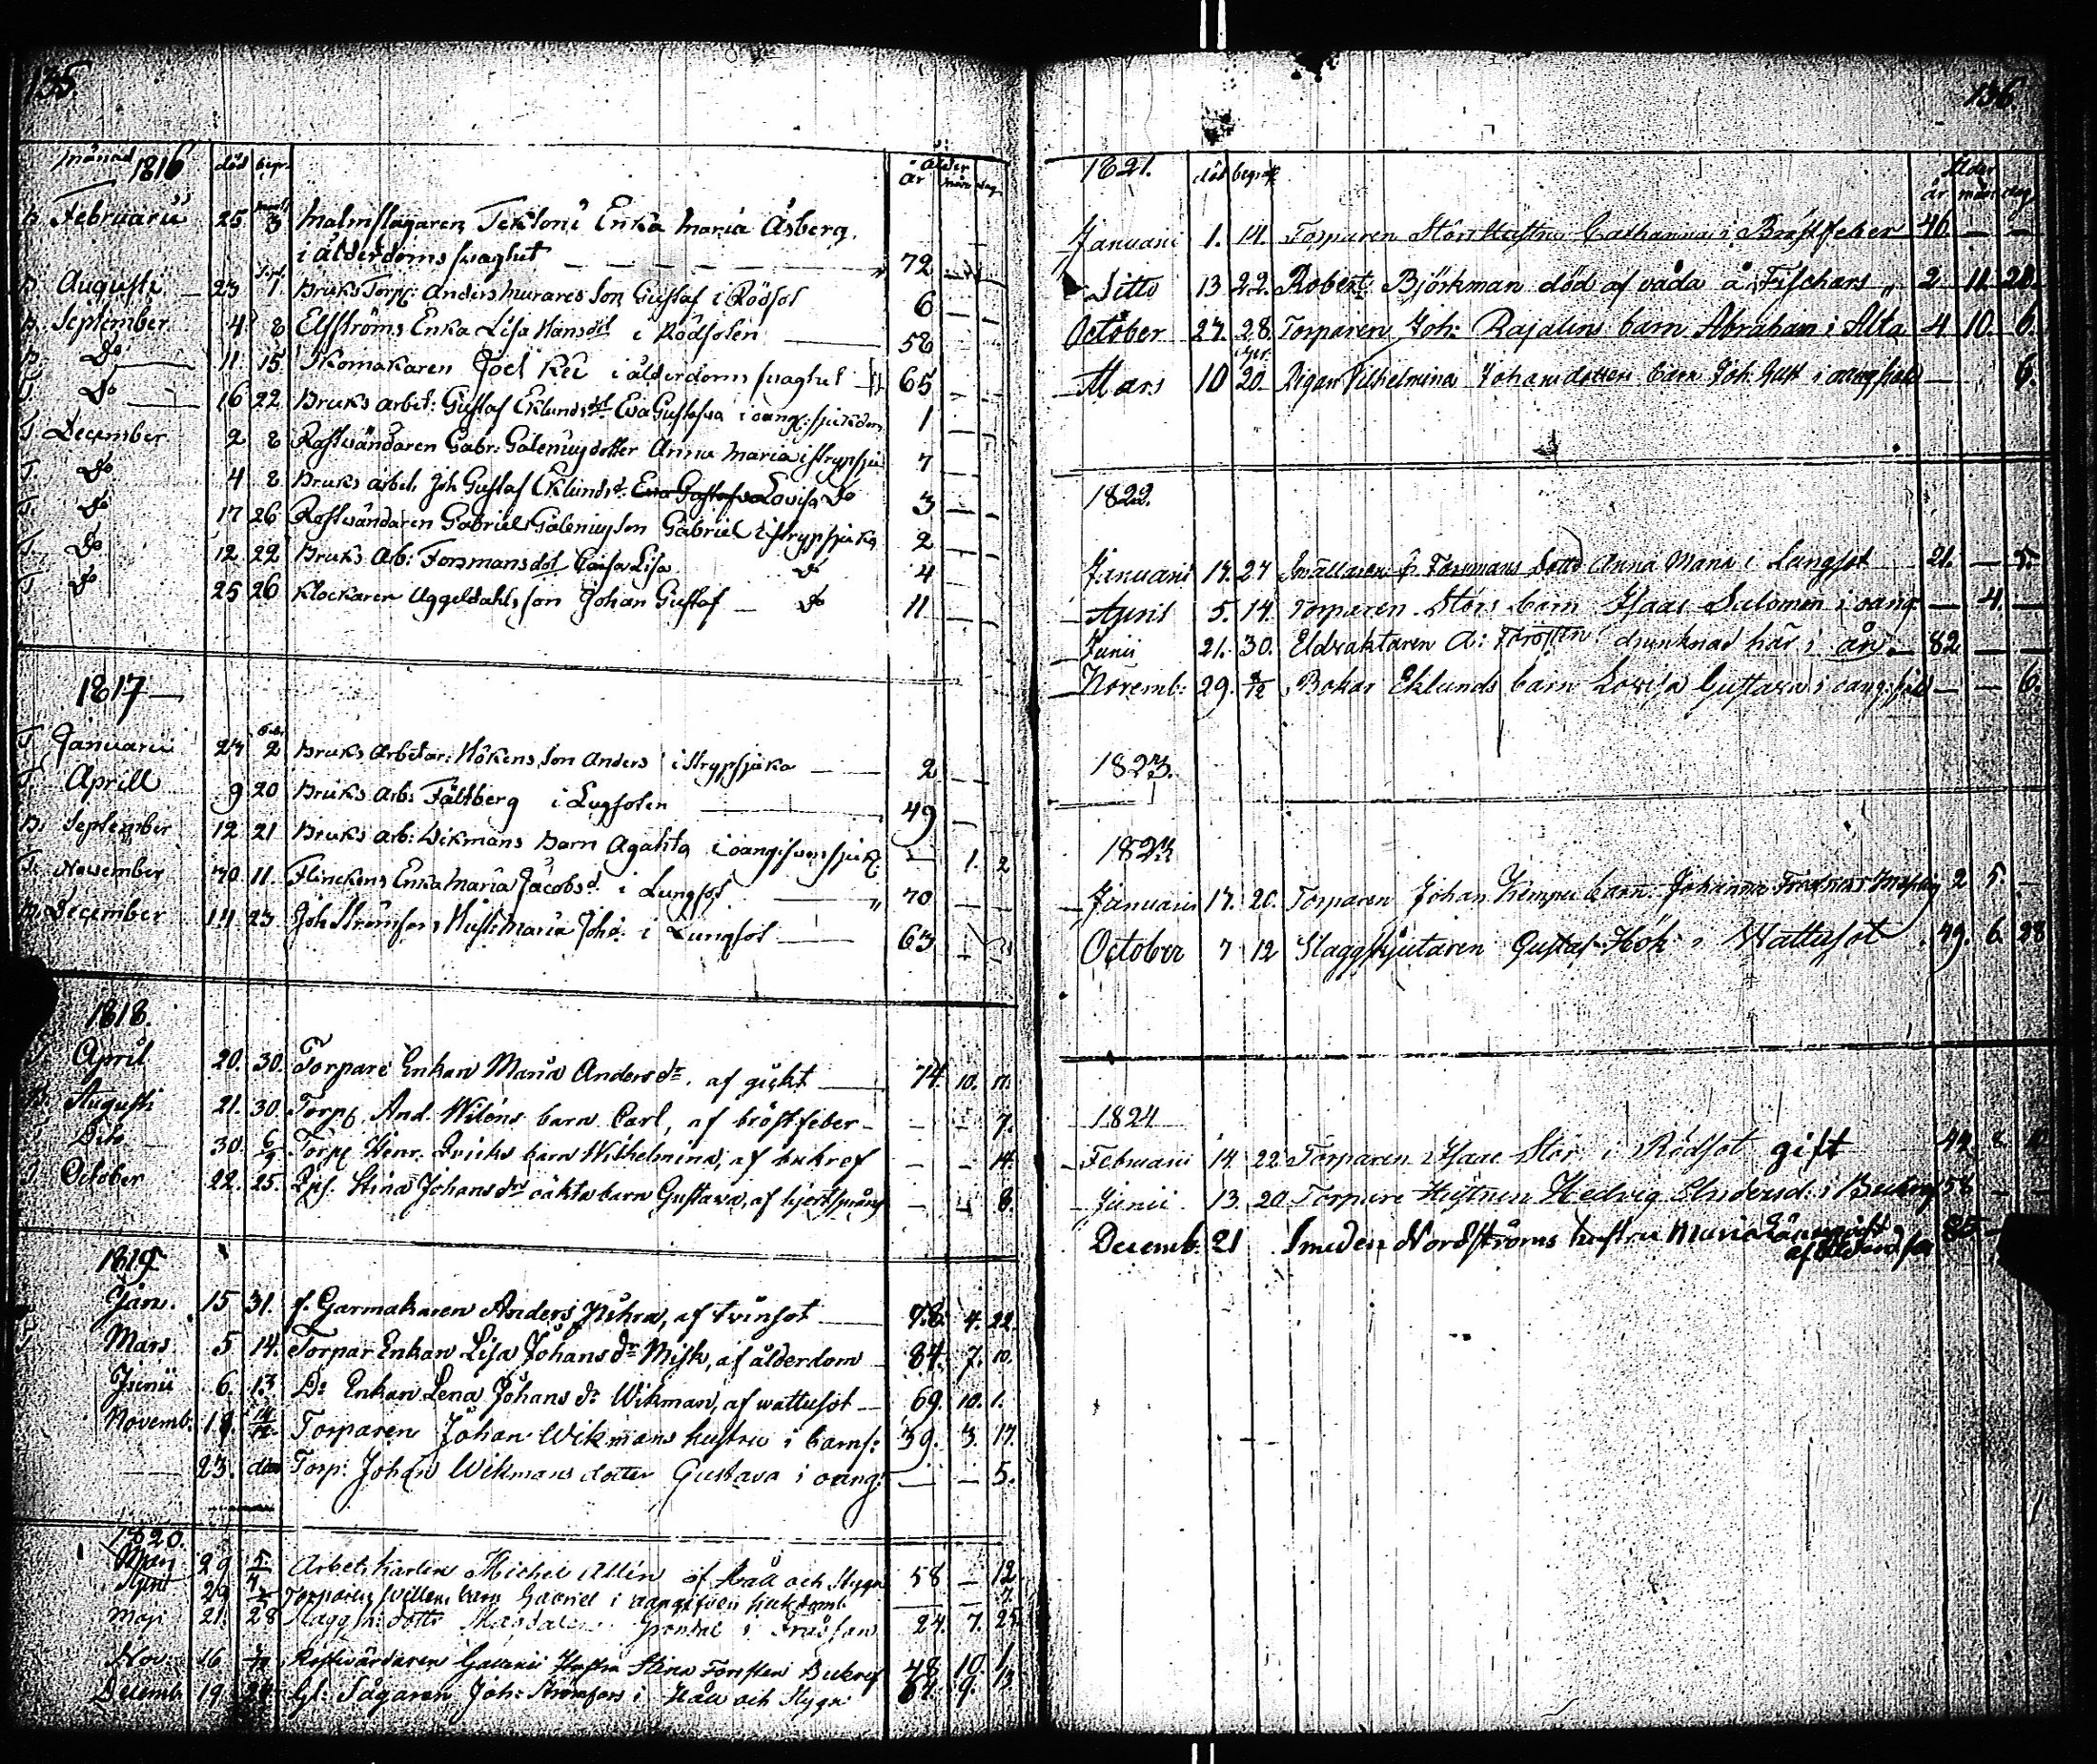 135.
månad 1816 död begr. Ålder
år mån dag
B. Februarii 25 3 Malmslagaren Teklons Enka Maria Åsberg
i ålderdoms svaghet 72
B. Augusti 23 Sept. 1 Bruks Torp: Anders Murares Son Gustaf i Rödsot 6
B. September 4 8 Elfströms Enka Lisa Hansdot i Rödsoten 58
Do 11 15 Skomakaren Joel Kei i ålderdoms svaghet 65
T. Do 16 22 Bruks arbet: Gustaf Eklunds dot Eva Gustafva i oang: sjukdom 1
T. December 2 8 Rostvändaren Gabr: Galenius dotter Anna Maria i strypsju 7
T. Do 4 8 Bruks arbet. Joh Gustaf Eklunds d. Eva Gustafva Lovisa Do 3
T. Do 17 26 Rostvändaren Gabriel Galenius Son Gabriel i strypsjuka 2
T. Do 12 22 Bruks Arb: Forsmans dot Caisa Lisa Do 4
T Do 25 26 Klockaren Uggeldahls son Johan Gustaf Do 11
1817
T. Januarii 27 Feb. 2 Bruks Arbetar: Hökens Son Anders i strypsjuka 2
T. Aprill 9 20 Bruks Arb: Fältberg i Lugsoten 49
B. September 12 21 Bruks Arb: Wikmans Barn Agahta i oangifven sjukd 1. 2
T. November 10. 11. Flinckens Enka Maria Jacobs d. i Lungsot 70
B. December 14 23. Joh Strömfors Hust: Maria Joh d. i Lungsot 63
1818.
April 20. 30. Torpare Enkan Maria Anders dr. af gickt 74. 10. 11.
B. Augusti 21. 30. Torp. And. Wiléns barn Carl, af bröstfeber 7.
Dito 30. 6/9 Torp. Henr. Qvicks barn Wilhelmina, af bukref 14.
October 22. 25. Pig. Stina Johans dr oäkta barn Gustava, af hjertsprång 8.
1819
Jan. 15 31. f. Garmakaren Anders, af tvinsot 78. 4. 22.
Mars 5 14. Torpar Enkan Lisa Johans dr Misk, af ålderdom 84. 7. 10.
Junii 6. 13 Do Enkan Lena Johans dr Wikman, af wattusot 69. 10. 1.
Novemb. 18. 14/12 Torparen Johan Wikmans hustru i barns: 39. 3. 17.
23. dito Torp: Johan Wikmans dotter Gustava i oang: 5.
1820.
29 5/4 Arbets karlen Michel Allén af Håll och Stygn 58 12
April 29 Torparen barn Gabriel i oangifven sjukdom 7
Maji 21. 28 dotter Magdalena Gröndal i 24. 7. 25
Nov: 16 Rostvändaren Galenii Hustru Stina Forsten Bukref 48 10. 1
Decemb. 19 24 Gl: Sågaren Joh: Strömfors i Håll och Stygn 64. 9. 13
136
1821. död begraf Ålder
år mån dag
Januarii 1. 14. Torparen Störs Hustru Catharina i Bröstfeber 46
Ditto 13 22. Robert Björkman död af våda å Fischars 2 11 28.
October 27. 28. Torparen Joh: Rajalins barn Abraham i Alta 4 10. 6.
Mars 10 20. Pigan Vilhelmina Johansdotters barn Joh. Gust i oang sjuk 6.
1822.
Januarii 17. 27 Smällaren Forsmans Dotter Anna Maria i Lungsot 21. 5.
April 5. 14. Torparen Störs barn Isaac Salomon i oang 4.
Junii 21. 30. Eldvaktaren A: Forsten drunknad här i ån. 82
Novemb: 29. 8/12 Bokar Eklunds barn Lovisa Gustava i oang: sjukd 6.
1823.
1823
Januarii 17. 20. Torparen Johan Kempes barn Johanna 2 5.
October 7 12 Slaggskjutaren Gustaf Hök i Wattusot 49. 6. 28
1824
Februarii 14. 22 Torparen Isaac Stör i Rödsot gift 42. 2. 10
Junii 13. 20 Torpare Hustrun Hedvig Andersd: i Bukref 58
Decemb. 21 Smeden Nordströms hustru Maria Lönnqvist
af Ålderd. 85